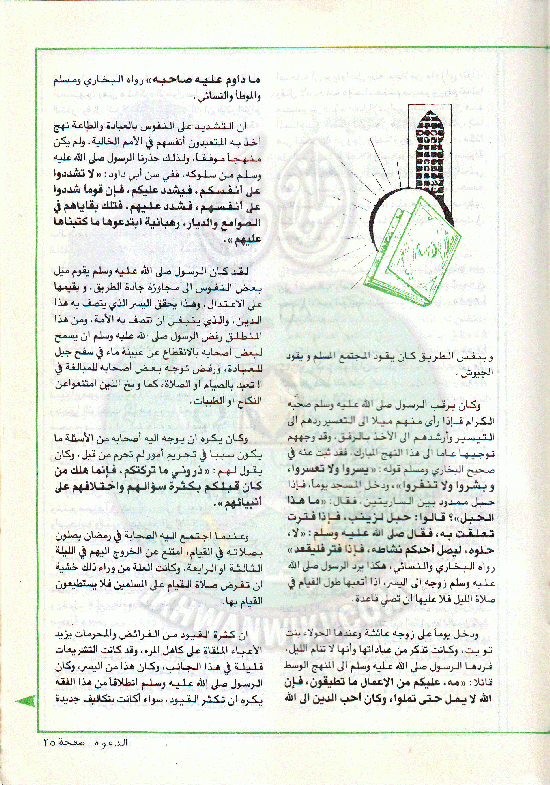 وبنفس الطريق كان يقود المجتمع المسلم ويقود
الجيوش.
وكان يرقب الرسول صلى الله عليه وسلم صحبه
الكرام فإذا رأى منهم ميلا الى التعسير ردهم الى
التيسير وأرشدهم الى الأخذ بالرفق، وقد وجههم
توجيها عاما الى هذا النهج المبارك. فقد ثبت عنه في
صحيح البخاري ومسلم قوله: «يسروا ولا تعسروا،
وبشروا ولا تنفروا»، ودخل المسجد يوما، فإذا
حبل ممدود بين الساريتين، فقال: «ما هذا
الحبل»؟ قالوا: حبل لزينب، فإذا فترت
تعلقت به، فقال صلى الله عليه وسلم: «لا،
حلوه، ليصل أحدكم نشاطه، فإذا فتر فليقعد»
رواه البخاري والنسائي، هكذا يرد الرسول صلى الله
عليه وسلم زوجه الى اليسر، اذا أتعبها طول القيام في
صلاة الليل فلا عليها أن تصلي قاعدة.
ودخل يوماً على زوجه عائشة وعندها الحولاء بنت
تويت، وكانت تذكر من عباداتها وأنها لا تنام الليل،
فردها الرسول صلى الله عليه وسلم الى المنهج الوسط
قائلا: «مه، عليكم من الاعمال ما تطيقون، فإن
الله لا يمل حتى تملوا، وكان أحب الدين الى الله
ما داوم عليه صاحبه» رواه البخاري ومسلم
والموطأ والنسائي.
ان التشديد على النفوس بالعبادة والطاعة نهج
أخذ به المتعبدون أنفسهم في الأمم الخالية، ولم يكن
منهجا موفقا، ولذلك حذرنا الرسول صلى الله عليه
وسلم من سلوكه، ففي سنن أبي داود: «لا تشددوا
على أنفسكم، فيشدد عليكم، فإن قوما شددوا
على أنفسهم، فشدد عليهم، فتلك بقاياهم في
الصوامع والديار، رهبانية ابتدعوها ما كتبناها
عليهم».
لقد كان الرسول صلى الله عليه وسلم يقوم ميل
بعض النفوس الى مجاوزة جادة الطريق، ويقيمها
على الاعتدال، وهذا يحقق اليسر الذي يتصف به هذا
الدين، والذي ينبغي ان تتصف به الأمة، ومن هذا
المنطلق رفض الرسول صلى الله عليه وسلم ان يسمح
لبعض أصحابه بالانقطاع عن عيينة ماء في سفح جبل
للعبادة، ورفض توجه بعض أصحابه للمبالغة في
التعبد بالصيام او الصلاة، كما وبخ الذين امتنعوا عن
النكاح او الطيبات.
وكان يكره ان يوجه اليه أصحابه من الأسئلة ما
يكون سببا في تحريم أمور لم تحرم من قبل، وكان
يقول لهم: «ذروني ما تركتكم، فإنما هلك من
كان قبلكم بكثرة سؤالهم واختلافهم على
أنبيائهم».
وعندما اجتمع اليه الصحابة في رمضان يصلون
بصلاته في القيام، امتنع عن الخروج اليهم في الليلة
الثالثة او الرابعة، وكانت العلة من وراء ذلك خشية
ان تفرض صلاة القيام على المسلمين فلا يستطيعون
القيام بها.
ان كثرة القيود من الفرائض والمحرمات يزيد
الأعباء الملقاة على كاهل المرء، وقد كانت التشريعات
قليلة في هذا الجانب، وكان هذا من اليسر، وكان
الرسول صلى الله عليه وسلم انطلاقا من هذا الفقه
يكره ان تكثر القيود، سواء أكانت بتكاليف جديدة
الدعوة. صفحة ٢٥